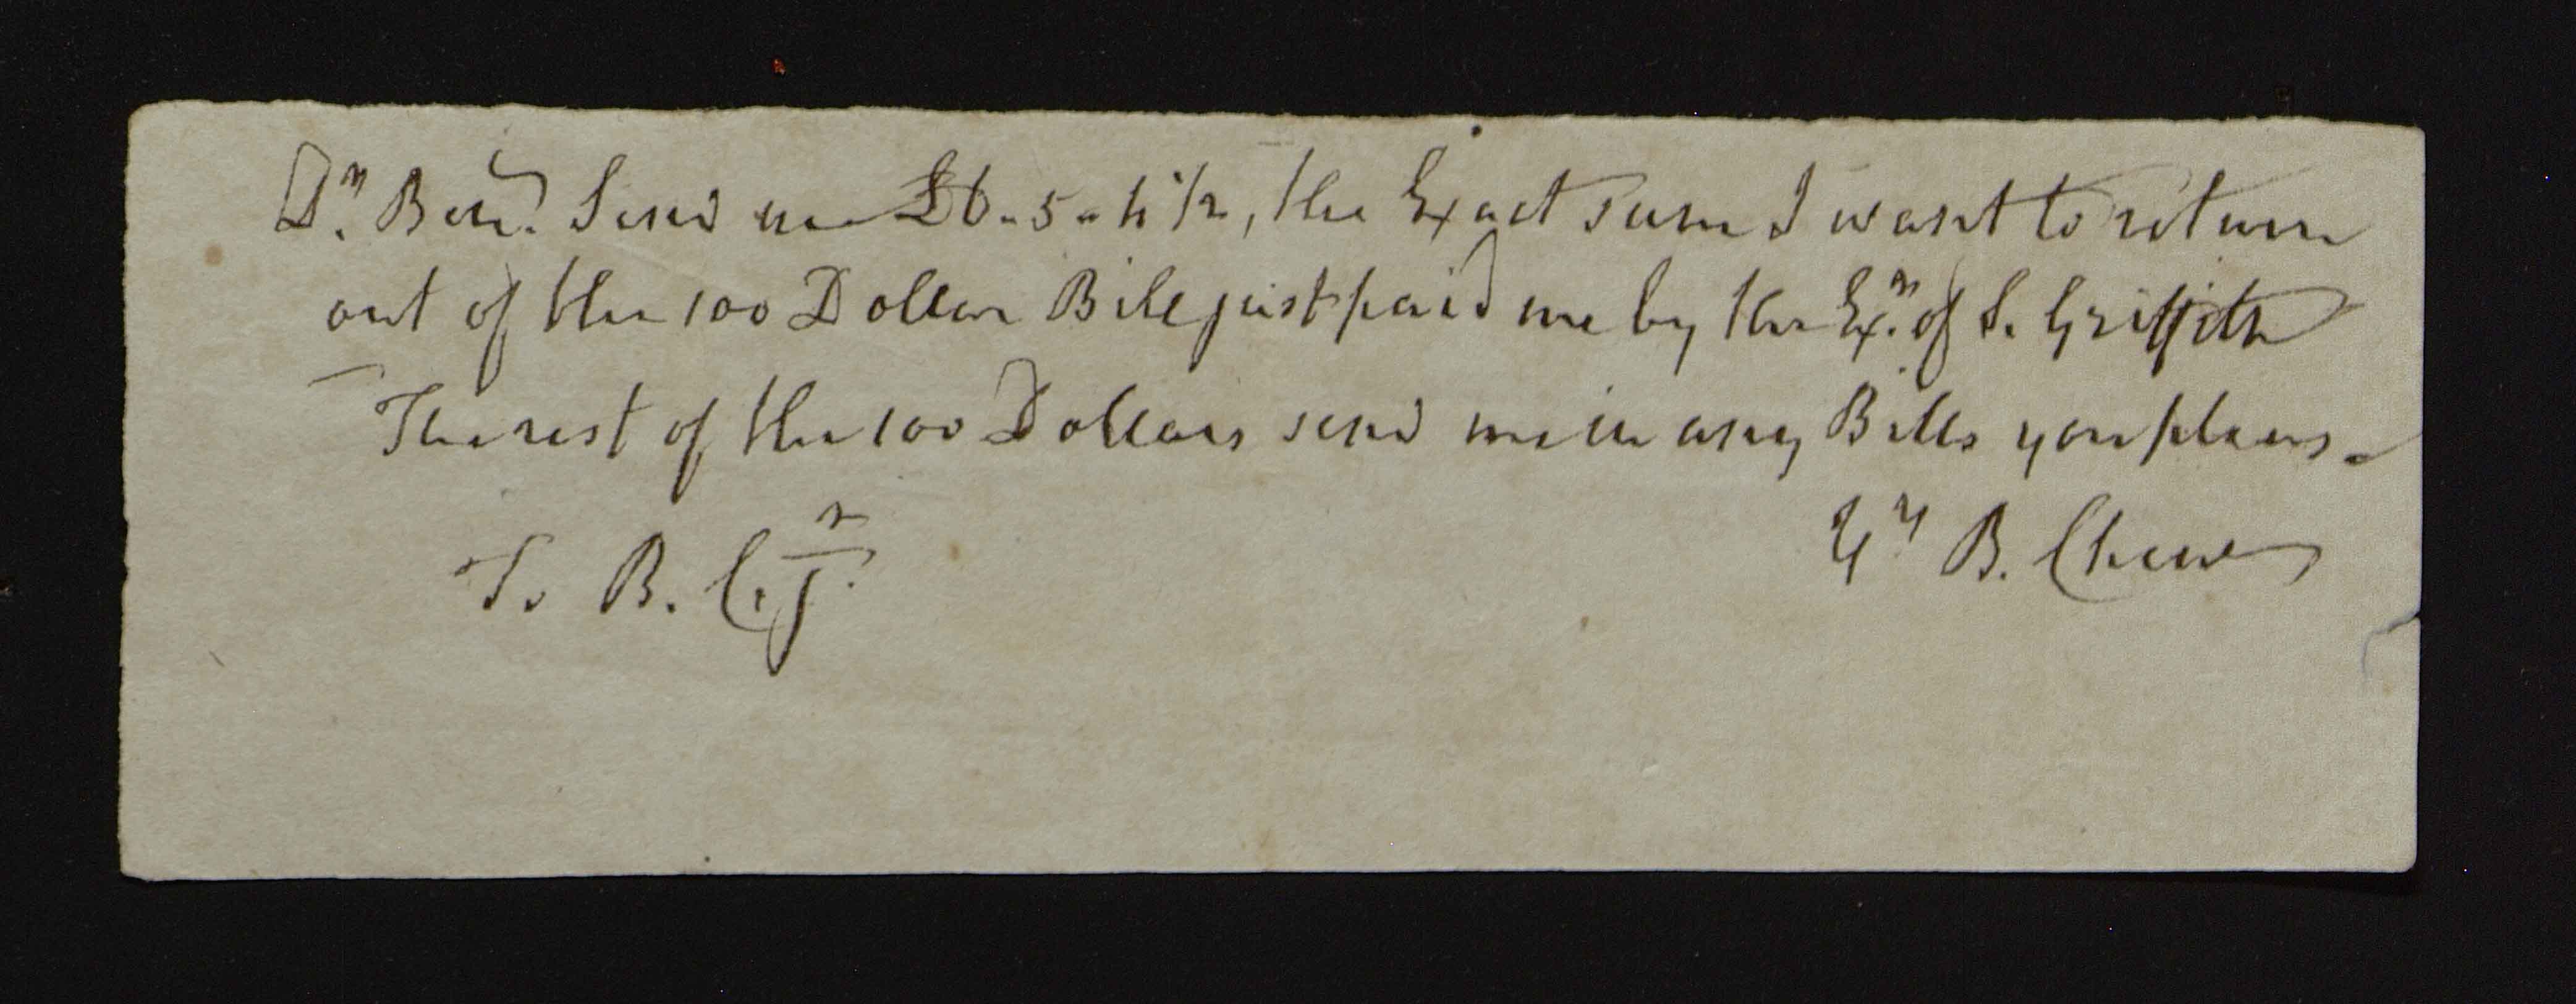 Dr. Benj. Send me £6-5-4 1/2, the Exact sum I want to return
out of the 100 Dollar Bill just paid me by the Exr. of S. Griffith
The rest of the 100 Dollars send me in any Bills you please.
Yr B. Chew
To B. C. Jr.